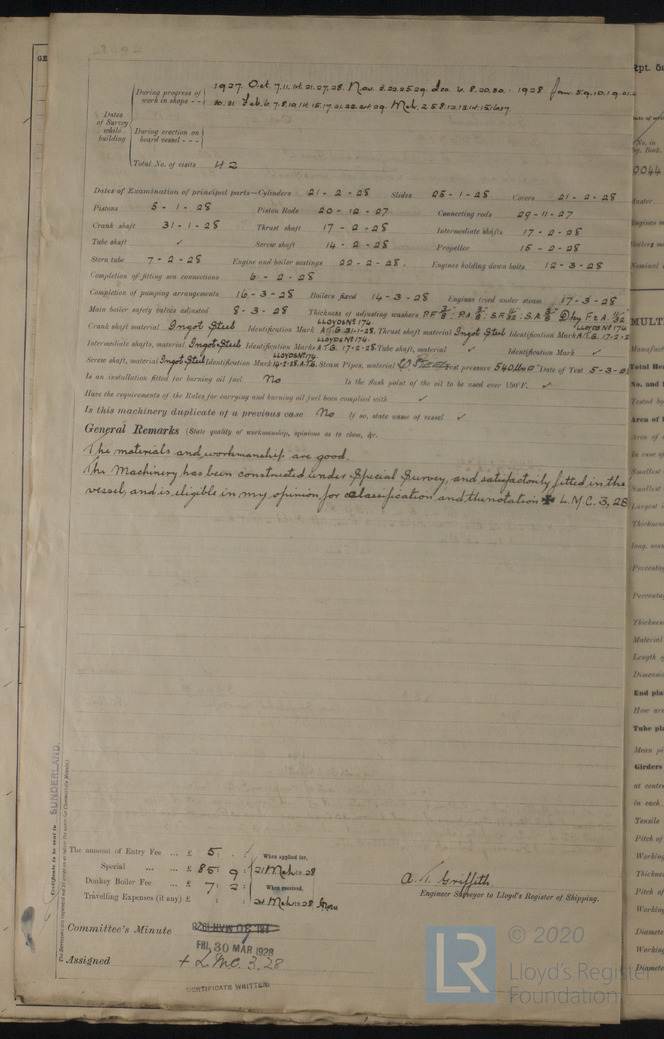 During progress of work in shops - - 1927. Oct. 7.11.14.21.27.28. Nov. 2.22.25.29. Dec. 6. 8.20.30. 1928 Jan. 5.9.10.19.
30.31 Feb. 6.7.8.10.14.15.17.21.22.24.29. Mch. 2.5.8.12.13.14.15.16.17
Dates of Survey while building
During erection on board vessel - - -
Total No. of visits 42
Dates of Examination of principal parts—Cylinders 21-2-28 Slides 25-1-28 Covers 21-2-28
Pistons 5-1-28 Piston Rods 20-12-27 Connecting rods 29-11-27
Crank shaft 31-1-28 Thrust shaft 17-2-28 Intermediate shafts 17-2-28
Tube shaft ✓ Screw shaft 14-2-28 Propeller 15-2-28
Stern tube 7-2-28 Engine and boiler seatings 22-2-28. Engines holding down bolts 12-3-28
Completion of fitting sea connections 6-2-28
Completion of pumping arrangements 16-3-28 Boilers fixed 14-3-28 Engines tried under steam 17-3-28
Main boiler safety valves adjusted 8-3-28 Thickness of adjusting washers P.F. 3/8: P.A. 3/8: S.F. : S.A. 3/8 Dky F&A
Crank shaft material Ingot Steel Identification Mark LLOYDS No 174. A.T.G. 31-1-28. Thrust shaft material Ingot Steel Identification Mark LLOYDS No 174 A.T.G. 17-2-2
Intermediate shafts, material Ingot Steel Identification Marks LLOYDS No 174. A.T.G. 17-2-28 Tube shaft, material ✓ Identification Mark ✓
Screw shaft, material Ingot Steel Identification Mark LLOYDS No 174. 14-2-28 A.T.G. Steam Pipes, material Test pressure 540 lbs □" Date of Test 5-3-
Is an installation fitted for burning oil fuel No Is the flash point of the oil to be used over 150°F. ✓
Have the requirements of the Rules for carrying and burning oil fuel been complied with ✓
Is this machinery duplicate of a previous case No If so, state name of vessel ✓
General Remarks (State quality of workmanship, opinions as to class, &c.
The materials and workmanship are good.
The Machinery has been constructed under Special Survey, and satisfactorily fitted in the
vessel, and is eligible in my opinion for classification and the notation ✠ L.M.C. 3,28
Certificate to be sent to SUNDERLAND.
The amount of Entry Fee ... £ 5 : When applied for,
Special ... ... £ 85 : 9 : 21 Mch 1928
Donkey Boiler Fee ... £ 7 : 2 : When received,
Travelling Expenses (if any) £ : 24 Mch 1928
A. T. Griffith.
Engineer Surveyor to Lloyd's Register of Shipping.
Committee's Minute
FRI. 30 MAR 1928
Assigned + L.M.C. 3.28
CERTIFICATE WRITTEN
LR © 2020
Lloyd's Register
Foundation